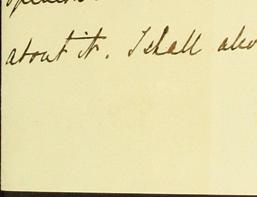 about it. I shall also